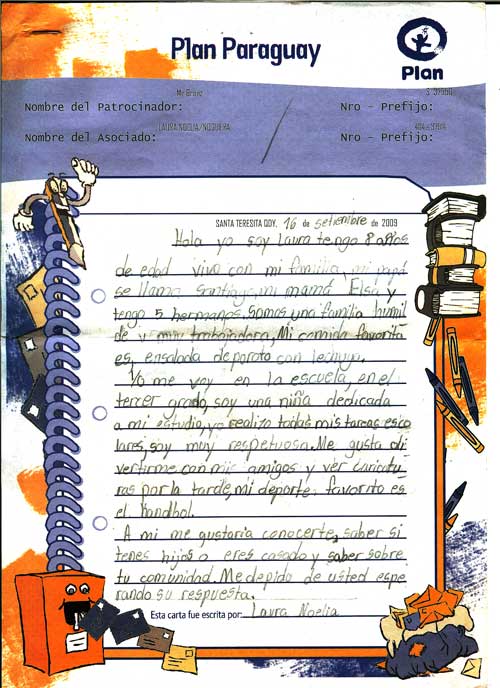 Plan Paraguay
Plan
Mr Brunc
Nombre del Patrocinador:
Nro - Prefijo:
LAURA NOELIA/NOGUERA
Nombre del Asociado:
Nro - Prefijo:
SANTA TERESITA QDY, 16 de setiembre de 2009
Hola yo soy Laura tengo 8 años
de edad vivo con mi familia, mi papá
se llama Santiago, mi mamá Elsa y
tengo 5 hermanos. Somos una familia humil
de y muy trabajadora, Mi comida favorita
es, ensalada de poroto con lechuga.
Yo me voy en la escuela, en el
tercer grado, soy una niña dedicada
a mi estudio, yo realizo todas mis tareas esco
lares, soy muy respetuosa. Me gusta di
vertirme con mis amigos y ver caricatu
ras por la tarde, mi deporte favorito es
el handbol.
A mi me gustaria conocerte, saber si
tenes hijos o eres casado y saber sobre
tu comunidad. Me depido de usted espe
rando su respuesta.
Esta carta fue escrita por: Laura Noelia